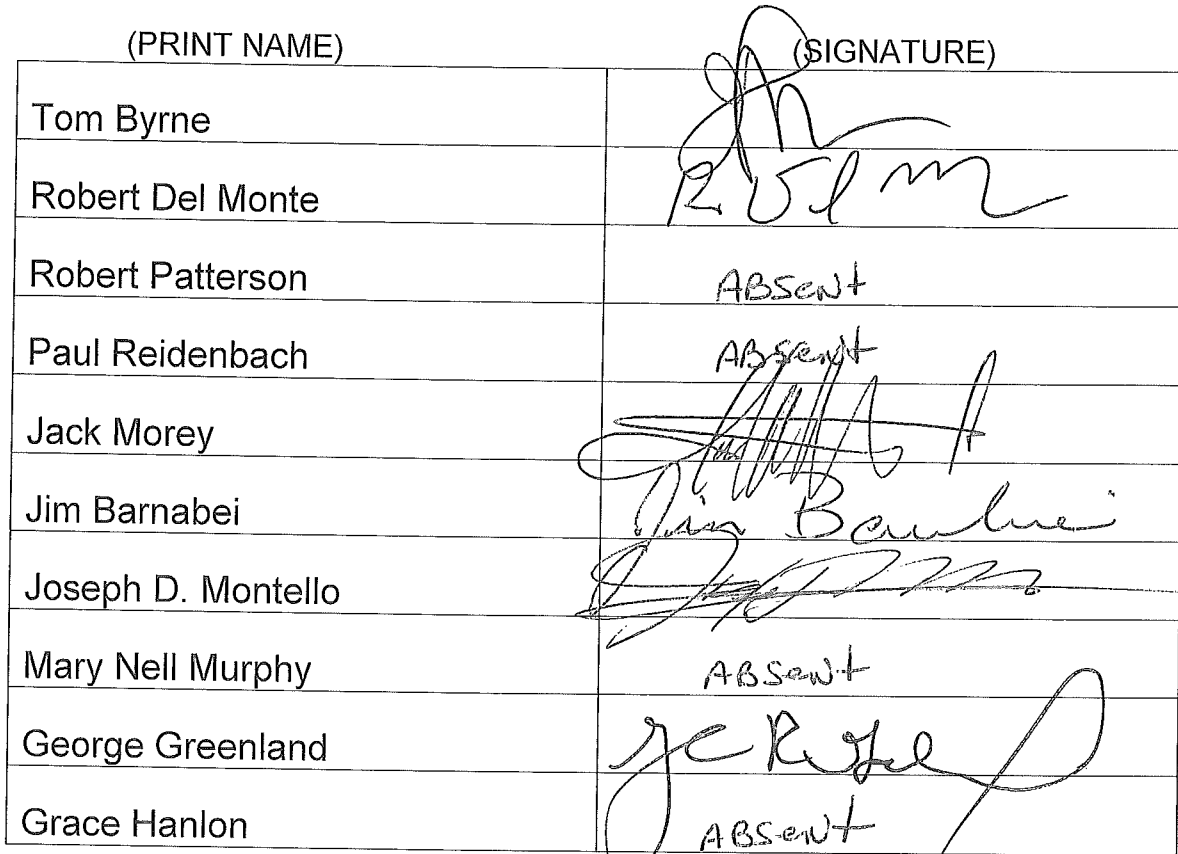 (PRINT NAME) (SIGNATURE)
Tom Byrne
Robert Del Monte
Robert Patterson ABSENT
Paul Reidenbach ABSENT
Jack Morey
Jim Barnabei Jim Barnabei
Joseph D. Montello
Mary Nell Murphy ABSENT
George Greenland
Grace Hanlon ABSENT